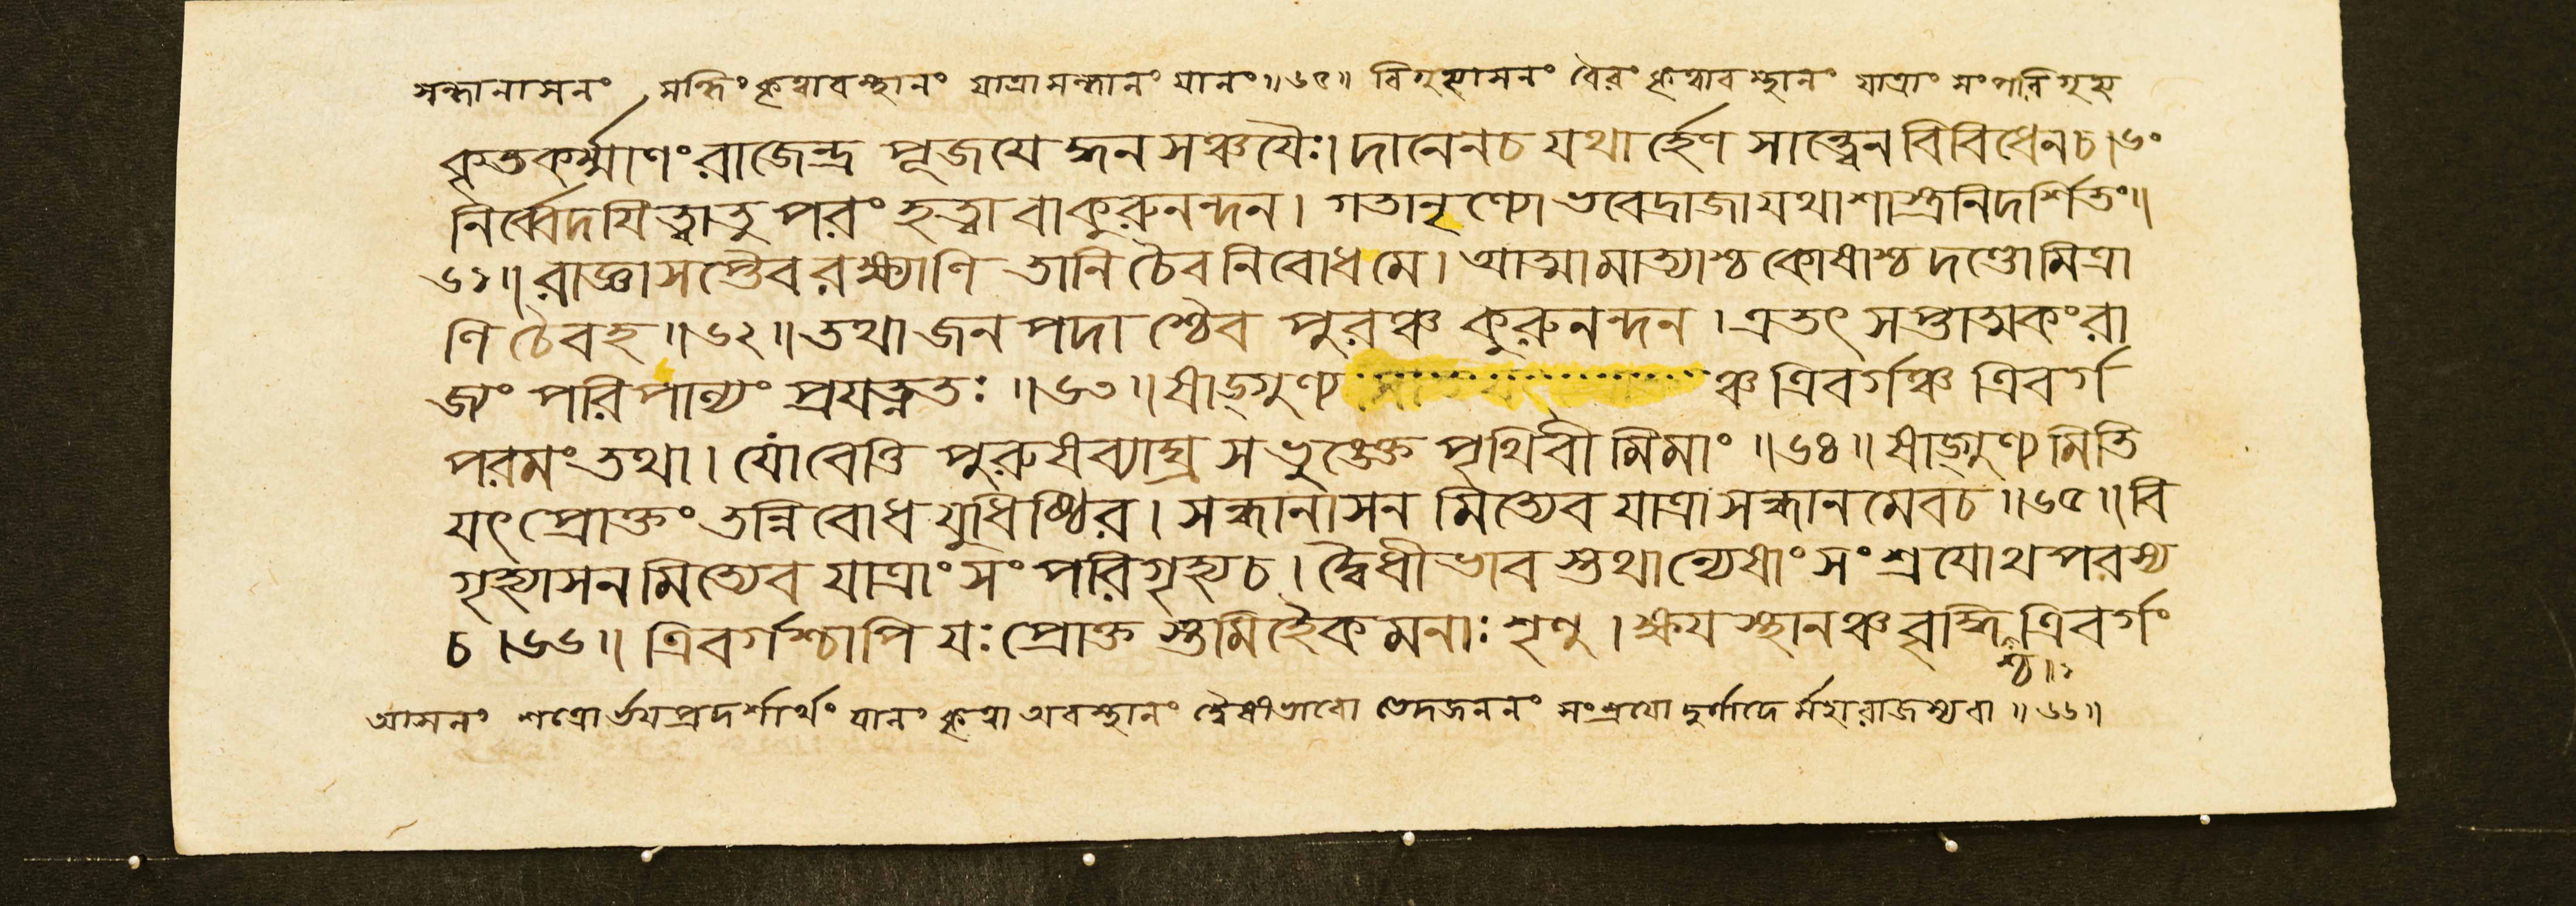 সন্ধানাসনং সন্ধিং কৃত্বাবস্থানং যাত্রাসন্ধানং যানং॥৬৫॥ বিগৃহ্যাসনং বৈরং কৃত্বাবস্থানং যাত্রাং সংপরিগৃহ্য
কৃতকর্ম্মাণং রাজেন্দ্র পূজযেদ্ধনসঞ্চযৈঃ। দানেনচ যথার্হেণ সান্ত্বেন বিবিধেনচ।৬০
নির্ব্বেদযিত্বাতু পরং হত্বা বা কুরুনন্দন। গতানৃণ্যো ভবেদ্রাজা যথাশাস্ত্রনিদর্শিতং॥
৬১॥ রাজ্ঞা সপ্তৈব রক্ষ্যাণি তানি চৈব নিবোধ মে। আত্মামাত্যাশ্চ কোষাশ্চ দণ্ডো মিত্রা
ণি চৈবহ॥৬২॥ তথা জনপদাশ্চৈব পুরঞ্চ কুরুনন্দন। এতৎ সপ্তাত্মকং রা
জ্যং পরিপাল্যং প্রযত্নতঃ॥৬৩॥ ষাড্গুণ্য ঞ্চ ত্রিবর্গঞ্চ ত্রিবর্গ
পরমং তথা। যো বেত্তি পুরুষব্যাঘ্র স ভুঙ্ক্তে পৃথিবীমিমাং॥৬৪॥ ষাড্গুণ্যমিতি
যৎ প্রোক্তং তন্নিবোধ যুধিষ্ঠির। সন্ধানাসনমিত্যেব যাত্রাসন্ধানমেবচ॥৬৫॥ বি
গৃহ্যাসনমিত্যেব যাত্রাং সংপরিগৃহ্যচ। দ্বৈধীভাবস্তথান্যেষাং সংশ্রযোথ পরস্য
চ।৬৬॥ ত্রিবর্গশ্চাপি যঃ প্রোক্তস্তমিহৈকমনাঃ শৃণু। ক্ষযস্থানঞ্চ বৃদ্ধিশ্চ ত্রিবর্গং
আসনং শত্রোর্ভযপ্রদর্শার্থং যানং কৃত্বা অবস্থানং দ্বৈধীভাবো ভেদজননং সংশ্রযো দুর্গাদের্মহারাজস্য বা॥৬৬॥